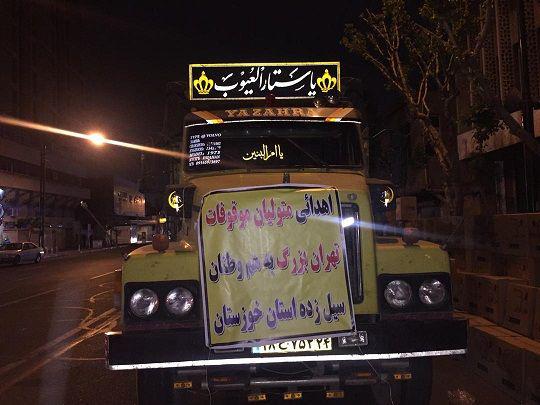 یا ستار العیوب
YAZAHRA
TYPE @ VOLVO
یا ام البنین
اهدائی متولیان موقوفات
تهران بزرگ به هم وطنان
سیل زده استان خوزستان